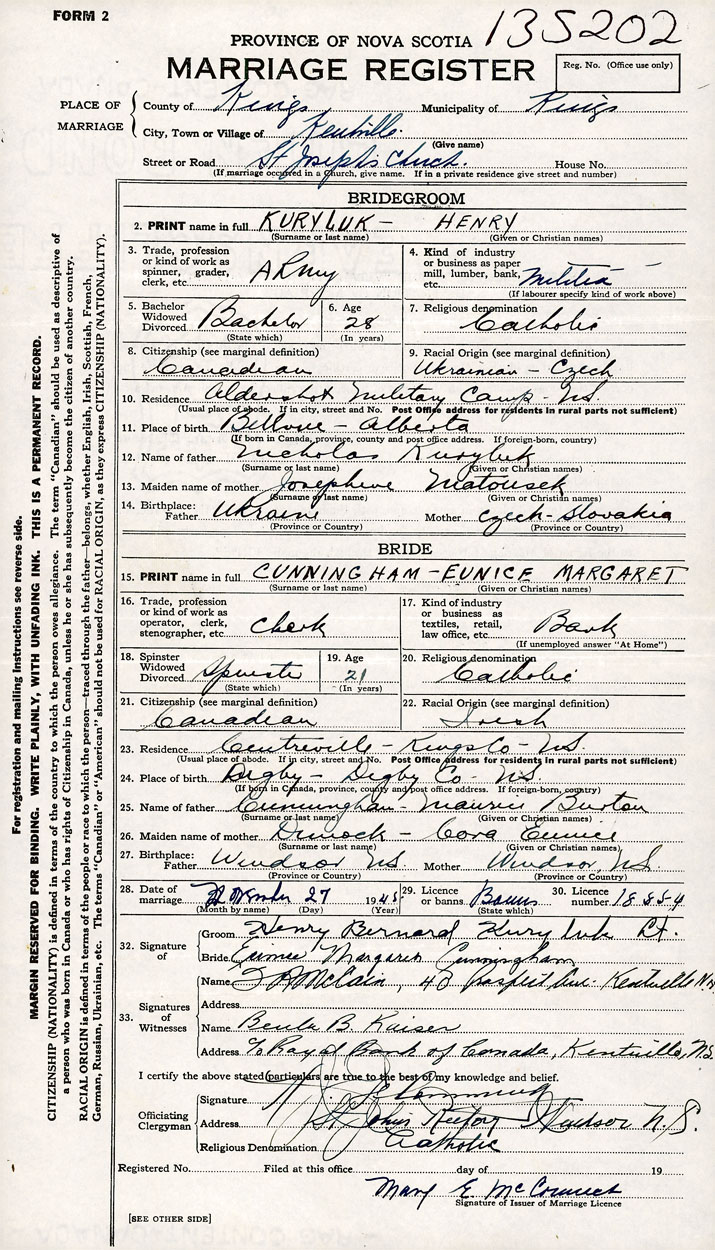 FORM 2
135202
PROVINCE OF NOVA SCOTIA
MARRIAGE REGISTER
Reg. No. (Office use only)
PLACE OF MARRIAGE
County of Kings Municipality of Kings
City, Town or Village of Kentville.
(Give name)
Street or Road St Joseph's Church. House No.
(If marriage occurred in a Church, give name. If in a private residence give street and number)
BRIDEGROOM
2. PRINT name in full KURYLUK - HENRY
(Surname or last name) (Given or Christian names)
3. Trade, profession or kind of work as spinner, grader, clerk, etc. Army
4. Kind of industry or business as paper mill, lumber, bank, etc. Militia
(If labourer specify kind of work above)
5. Bachelor Widowed Divorced Bachelor
(State which)
6. Age 28
(In years)
7. Religious denomination Catholic
8. Citizenship (see marginal definition) Canadian
9. Racial Origin (see marginal definition) Ukrainian - Czech
10. Residence Aldershot Military Camp - NS
(Usual place of abode. If in city, street and No. Post Office address for residents in rural parts not sufficient)
11. Place of birth Bellvue - Alberta
(If born in Canada, province, county and post office address. If foreign-born, country)
12. Name of father Nicholas Kuryluk
(Surname or last name) (Given or Christian names)
13. Maiden name of mother Josephine Matousek
(Surname or last name) (Given or Christian names)
14. Birthplace: Father Ukraine Mother Czech-Slovakia
(Province or Country) (Province or Country)
BRIDE
15. PRINT name in full CUNNINGHAM - EUNICE MARGARET
(Surname or last name) (Given or Christian names)
16. Trade, profession or kind of work as operator, clerk, stenographer, etc. Clerk
17. Kind of industry or business as textiles, retail, law office, etc. Bank
(If unemployed answer "At Home")
18. Spinster Widowed Divorced Spinster
(State which)
19. Age 21
(In years)
20. Religious denomination Catholic
21. Citizenship (see marginal definition) Canadian
22. Racial Origin (see marginal definition) Irish
23. Residence Centreville - Kings Co - NS.
(Usual place of abode. If in city, street and No. Post Office address for residents in rural parts not sufficient)
24. Place of birth Digby - Digby Co - NS.
(If born in Canada, province, county and post office address. If foreign-born, country)
25. Name of father Cunningham - Maurice Burton
(Surname or last name) (Given or Christian names)
26. Maiden name of mother Dimock - Cora Eunice
(Surname or last name) (Given or Christian names)
27. Birthplace: Father Windsor NS. Mother Windsor, NS.
(Province or Country) (Province or Country)
28. Date of marriage November 27 1945
(Month by name) (Day) (Year)
29. Licence or banns Banns
(State which)
30. Licence number 18854
32. Signature of
Groom Henry Bernard Kuryluk Lt.
Bride Eunice Margaret Cunningham
33. Signatures of Witnesses
Name McCain, 43 Prospect Ave. Kentville NS
Address
Name Beula B. Kaiser
Address % Royal Bank of Canada, Kentville, N.S.
I certify the above stated particulars are true to the best of my knowledge and belief.
Officiating Clergyman
Signature
Address St Johns Rectory Windsor N.S.
Religious Denomination Catholic
Registered No. Filed at this office day of 19
Mary E. McCormick
Signature of Issuer of Marriage Licence
[SEE OTHER SIDE]
For registration and mailing instructions see reverse side.
MARGIN RESERVED FOR BINDING. WRITE PLAINLY, WITH UNFADING INK. THIS IS A PERMANENT RECORD.
CITIZENSHIP (NATIONALITY) is defined in terms of the country to which the person owes allegiance. The term "Canadian" should be used as descriptive of
a person who was born in Canada or who has rights of Citizenship in Canada, unless he or she has subsequently become the citizen of another country.
RACIAL ORIGIN is defined in terms of the people or race to which the person—traced through the father—belongs, whether English, Irish, Scottish, French,
German, Russian, Ukrainian, etc. The terms "Canadian" or "American" should not be used for RACIAL ORIGIN, as they express CITIZENSHIP (NATIONALITY).